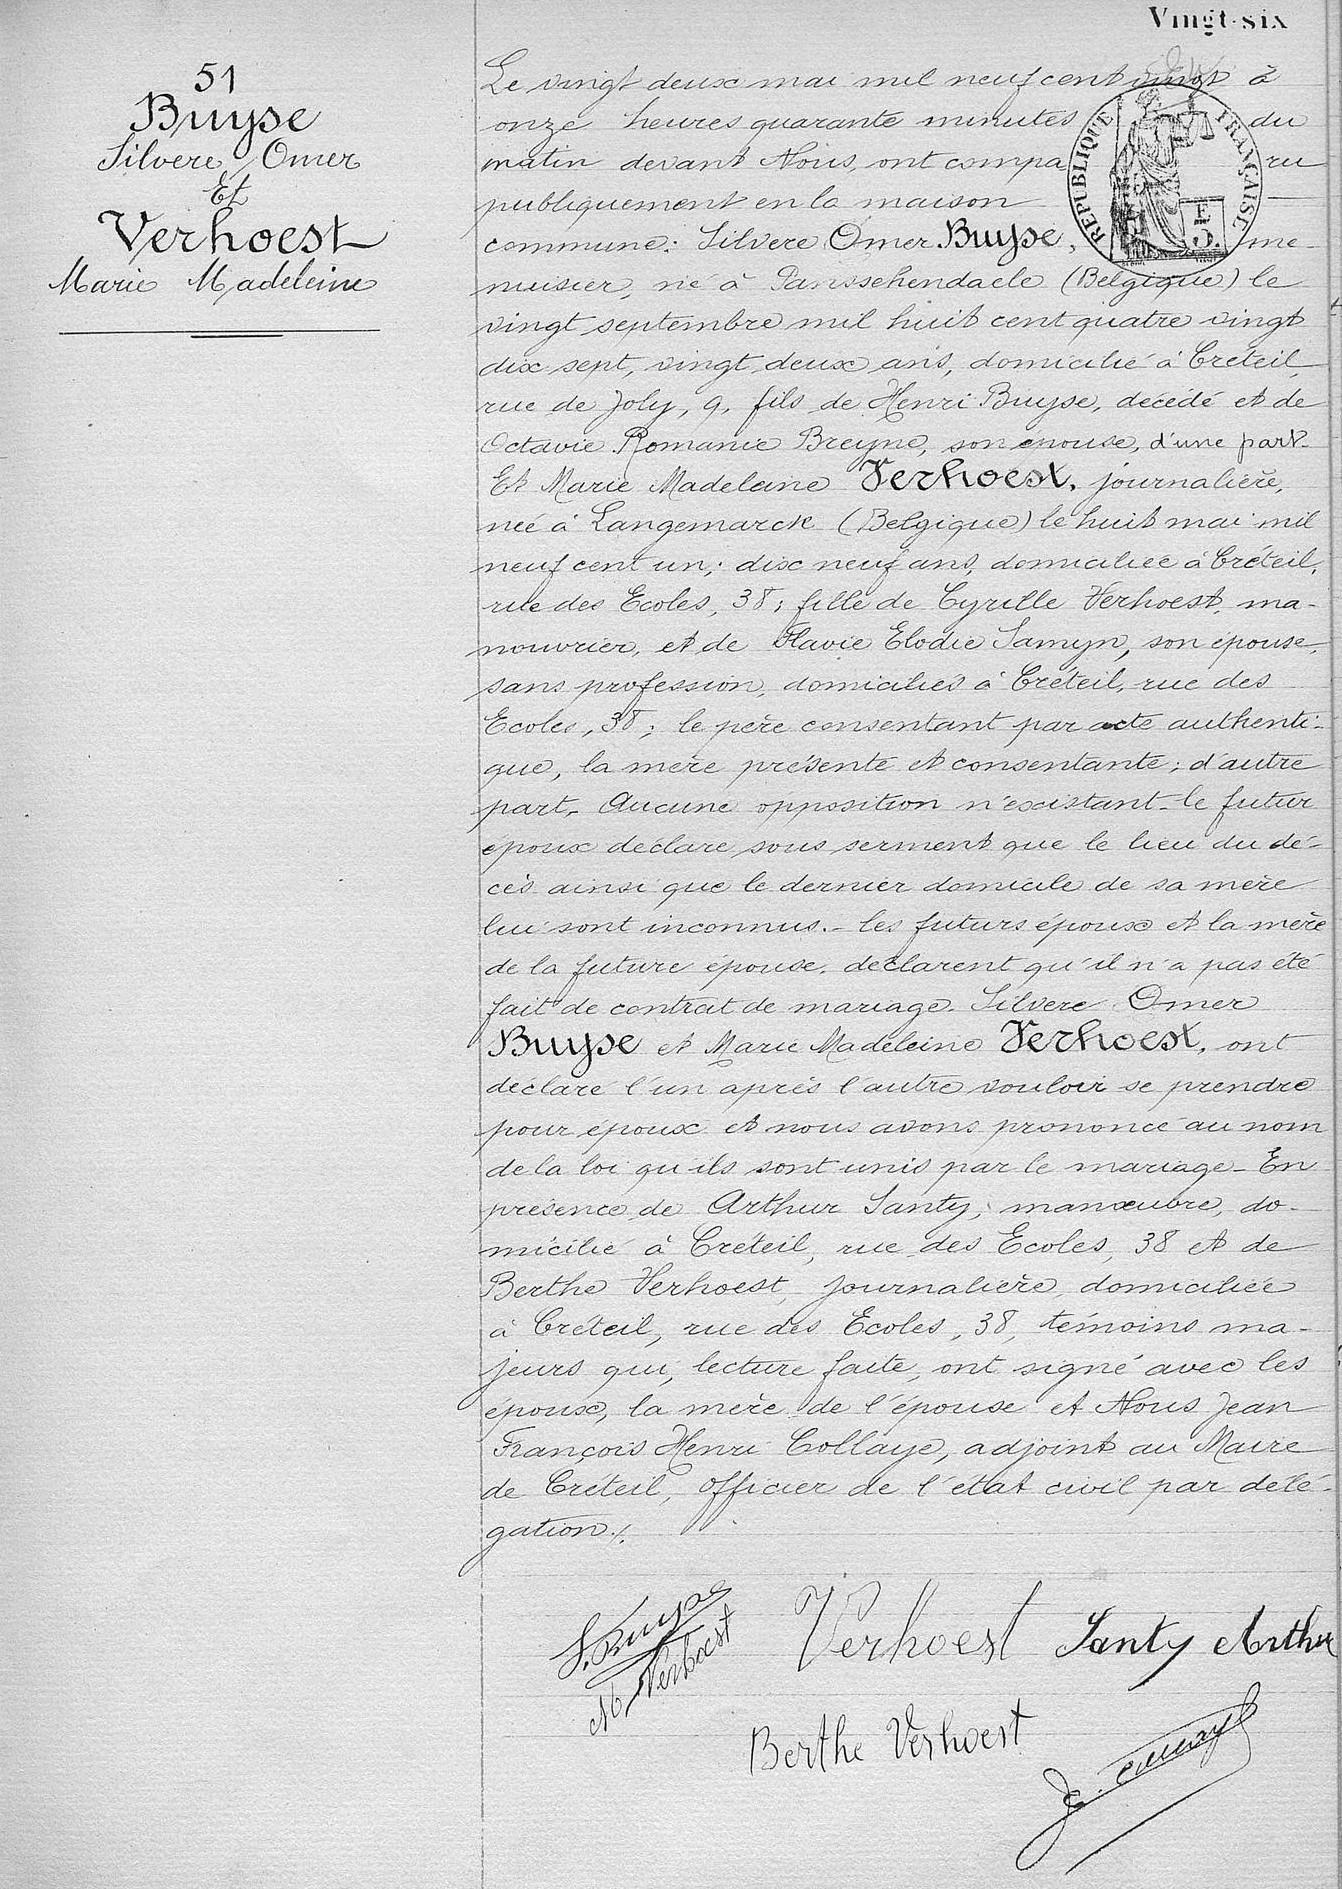 Vingt-six
51
Buyse
Silvere Omer
Et
Verhoest
Marie Madeleine
Le vingt deux mai mil neuf cent vingt à
onze heures quarante minutes du
matin devant Nous, ont compa ru
publiquement en la maison
commune: Silvere Omer Buyse, me-
nuisier, né à Passchendaele (Belgique) le
vingt septembre mil huit cent quatre vingt
dix sept, vingt deux ans, domicilié à Créteil
rue de Joly, 9, fils de Henri Buyse, décédé et de
Octavie Romanie Breyne, son épouse, d'une part.
Et Marie Madeleine Verhoest, journalière,
née à Langemarck (Belgique) le huit mai mil
neuf cent un; dix neuf ans, domiciliée à Créteil,
rue des Ecoles, 38; fille de Cyrille Verhoest, ma-
nouvrier, et de Flavie Elodie Samyn, son épouse,
sans profession, domiciliés à Créteil, rue des
Ecoles, 38; le père consentant par acte authenti-
que, la mère présente et consentante; d'autre
part. Aucune opposition n'existant. le futur
époux déclare sous serment que le lieu du dé-
cès ainsi que le dernier domicile de sa mère
lui sont inconnus.- les futurs époux et la mère
de la future épouse, déclarent qu'il n'a pas été
fait de contrat de mariage. Silvere Omer
Buyse et Marie Madeleine Verhoest, ont
déclaré l'un après l'autre vouloir se prendre
pour époux et nous avons prononcé au nom
de la loi qu'ils sont unis par le mariage - En
présence de Arthur Santy, manœuvre, do-
micilié à Créteil, rue des Ecoles, 38 et de
Berthe Verhoest, journalière, domiciliée
à Créteil, rue des Ecoles, 38, témoins ma-
jeurs qui, lecture faite, ont signé avec les
époux, la mère de l'épouse et Nous Jean
François Henri Collaye, adjoint au Maire
de Créteil, officier de l'état civil par délé-
gation./.
REPUBLIQUE FRANÇAISE
E
5.
S. Buyse
M Verhoest
Verhoest
Santy Arthur
Berthe Verhoest